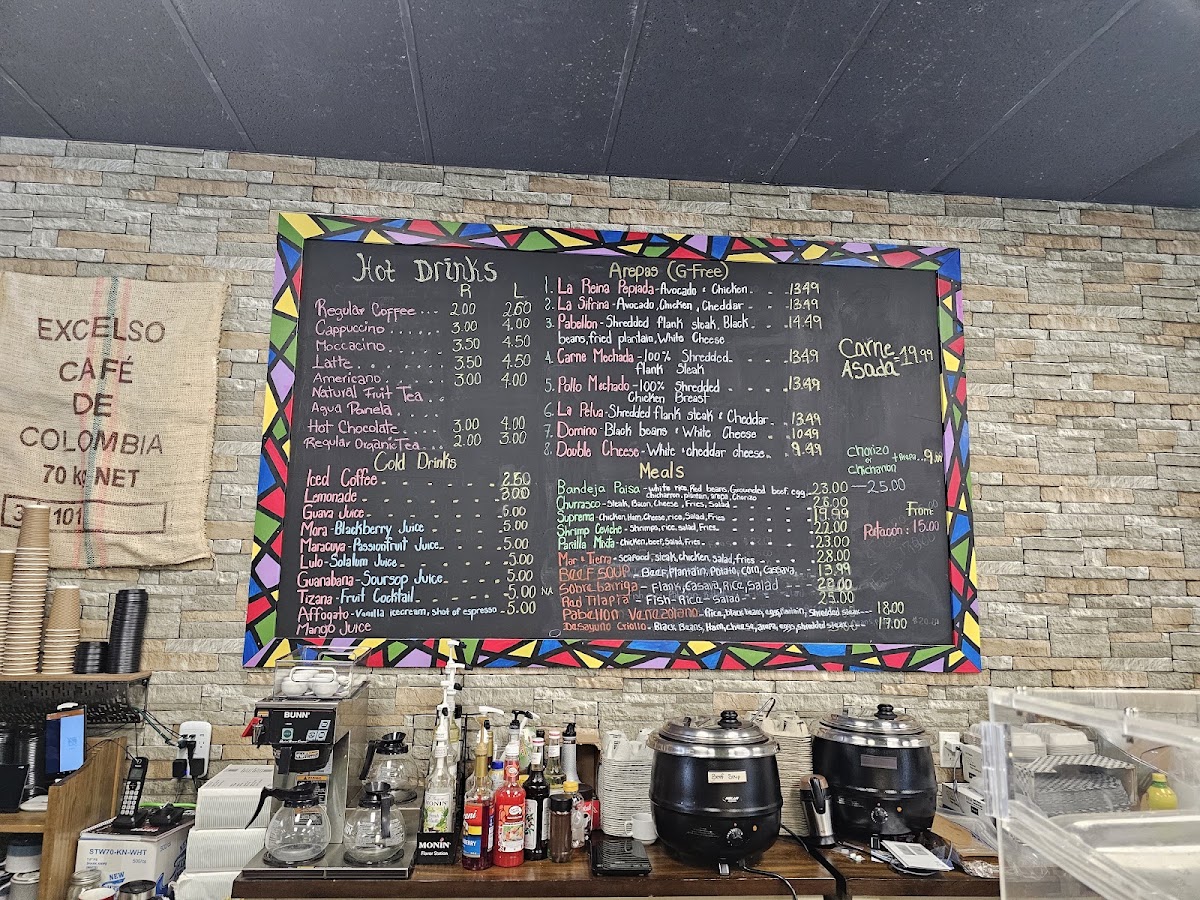 EXCELSO
CAFÉ
DE
COLOMBIA
70 KG NET
101
Hot Drinks
R L
Regular Coffee... 2.00 2.60
Cappuccino... 3.00 4.00
Moccacino... 3.50 4.50
Latte... 3.50 4.50
Americano... 3.00 4.00
Natural Fruit Tea..
Agua Panela...
Hot Chocolate... 3.00 4.00
Regular Organic Tea... 2.00 3.00
Cold Drinks
Iced Coffee
Lemonade 3.00
Guava Juice 5.00
Mora-Blackberry Juice 5.00
Maracuya-Passionfruit Juice 5.00
Lulo-Solalum Juice 5.00
Guanabana-Soursop Juice 5.00
Tizana-Fruit Cocktail 5.00 NA
Affogato-Vanilla icecream, shot of espresso 5.00
Mango Juice
Arepas (G-Free)
1. La Reina Pepiada-Avocado & Chicken 13.49
2. La Sifrina-Avocado, Chicken, Cheddar 13.49
3. Pabellon-Shredded flank steak, Black 14.49
beans, fried plantain, White Cheese
4. Carne Mechada-100% Shredded 13.49
flank Steak
5. Pollo Mechado-100% Shredded 13.49
Chicken Breast
6. La Pelua-Shredded flank steak & Cheddar 13.49
7. Domino-Black beans & White Cheese 10.49
8. Double Cheese-White & cheddar cheese 9.49
Meals
Bandeja Paisa-white rice, Red beans, Grounded beef, egg 23.00
chicharron, plantain, arepa, Chorizo
Churrasco-Steak, Bacon, Cheese, Fries, Salad 26.00
Suprema-Chicken, Ham, Cheese, rice, Salad, Fries 19.99
Shrimp Ceviche-Shrimps, rice, salad, Fries 22.00
Parrilla Mixta-Chicken, beef, Salad, Fries 23.00
Mar & Tierra-seafood, steak, chicken, salad, fries 28.00
BEEF SOUP-Beef, Plantain, Potato, corn, Cassava 13.99
Sobre barriga-Flank, Casava, Rice, Salad 22.00
Red Tilapia-Fish-Rice-Salad 25.00
Pabellon Venezolano-Rice, black beans, egg, Plantain, Shredded steak 18.00
Desayuno Criollo-Black Beans, Ham, cheese, arepa, eggs, shredded steak 17.00
Carne
Asada=19.99
Chorizo
or + Arepa..9.00
chicharron
-25.00
From:
Portación: 15.00
BUNN
MONIN
MONIN
Flavor Station
Beef Soup
STW70-KN-WHT
NEW